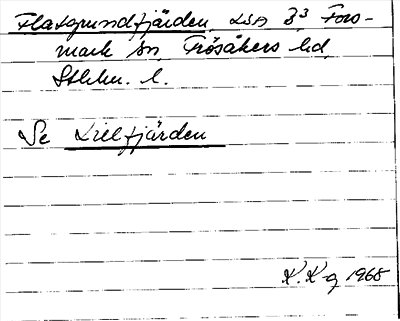 Flatgrundfjärden, LSA B³ Fors-
mark sn Frösåkers hd,
Sthlm. l.
Se Lillfjärden
K.Kg 1968